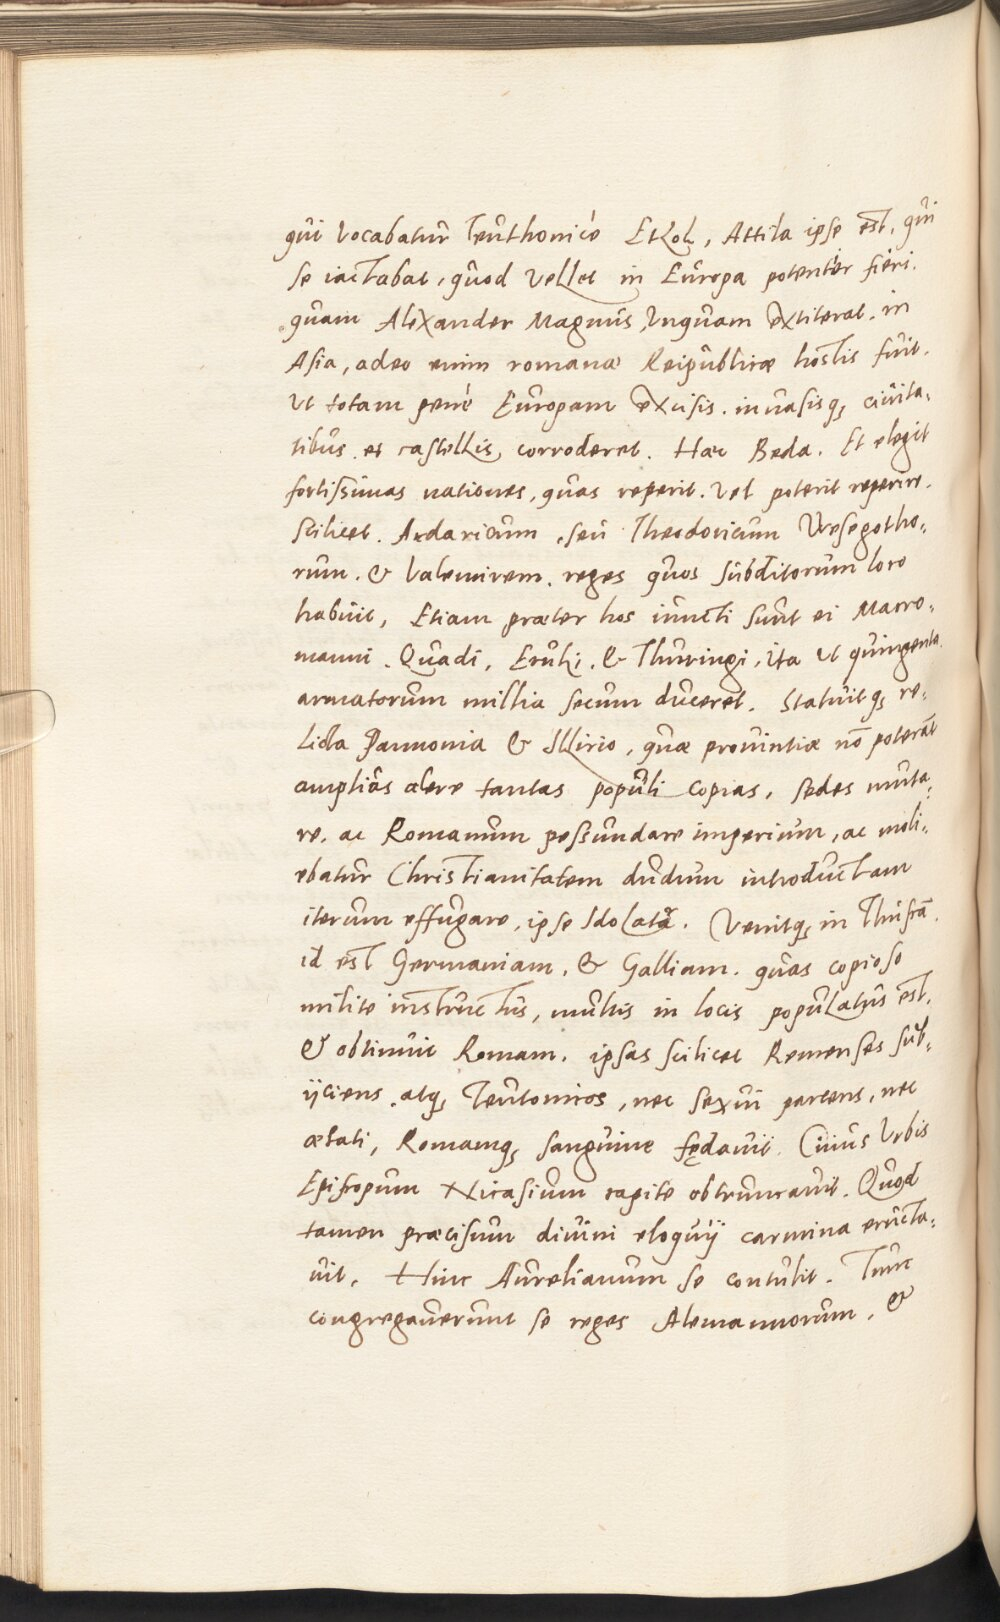 qui vocabatur Teuthonicè Etzol, Attila ipse est, qui
se iactabat, quod vellet in Europa potentèr fieri.
quam Alexander Magnus, unquam extiterat. in
Asia, adeo enim romanæ Reipublicæ hostis fuit.
ut totam penè Europam excisis. inuasisq; ciuita,
tibus et castellis, corroderet. Hæc Beda. Et elegit
fortissimas nationes, quas reperit. vel poterit reperire.
scilicet. Ardaricum, seu Theodoricum Wesegotho,
rum. & Valemirem. reges quos subditorum loco
habuit, Etiam præter hos iuncti sunt ei Marco,
manni. Quadi, Eruli. & Thuringi, ita ut quingenta
armatorum millia secum duceret. Statuitq; re,
licta Pannonia & Illirio, quæ prouintiæ nō poterāt
ampliùs alere tantas populi copias, sedes muta,
re. ac Romanum pessundare imperium, ac moli,
ebatur Christianitatem dudum introductam
iterum effugare, ipse Idolatra. Venitq; in Thusrā.
id est Germaniam, & Galliam. quas copioso
milite instructus, multis in locis populatus est.
& obtinuit Romam. ipsas scilicet Remenses sub,
ijciens. atq; Teutonicos, nec sexui parcens, nec
ætati, Romamq; sanguine fędauit. Cuius Urbis
Episcopum Nicasium capite obtruncauit. Quod
tamen præcisum diuini eloquij carmina eructa,
uit. Hinc Aurelianum se contulit. Tunc
congregauerunt se reges Alemannorum. &